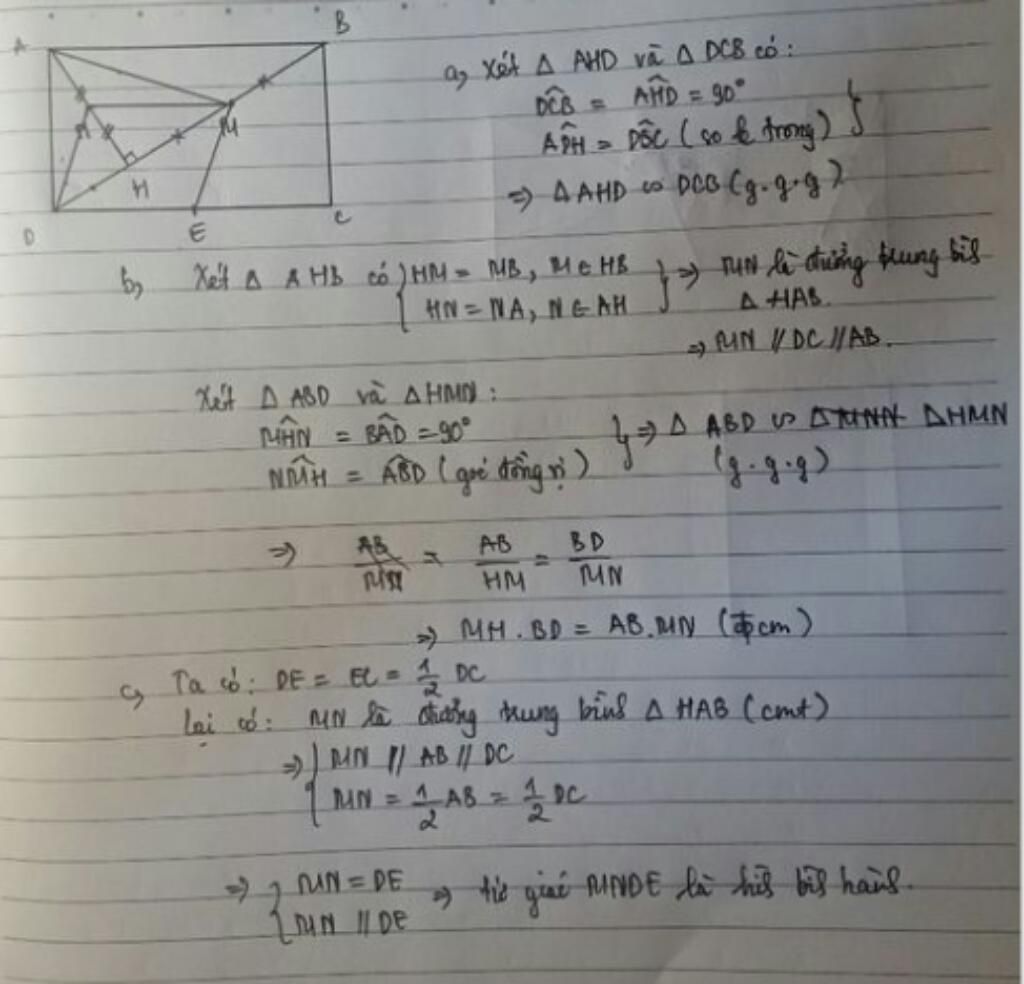 A
B
N
M
H
D
E
C
a, Xét Δ AHD và Δ DCB có:
DĈB = AĤD = 90°
AD̂H = DB̂C (so le trong) }
=> Δ AHD ∽ DCB (g.g.g)
b, Xét Δ AHB có { HM = MB, M ∈ HB } => MN là đường trung bìh
HN = NA, N ∈ AH Δ HAB.
=> MN // DC // AB.
Xét Δ ABD và Δ HMN:
MĤN = BÂD = 90°
NM̂H = AB̂D (góc đồng vị) } => Δ ABD ∽ Δ HMN
(g.g.g)
=> AB/MN = AB/HM = BD/MN
=> MH . BD = AB.MN (đpcm)
c, Ta có: DE = EC = 1/2 DC
lại có: MN là đường trung bìh Δ HAB (cmt)
=> { MN // AB // DC
MN = 1/2 AB = 1/2 DC
=> { MN = DE => tứ giác MNDE là hìh bìh hàh.
MN // DE